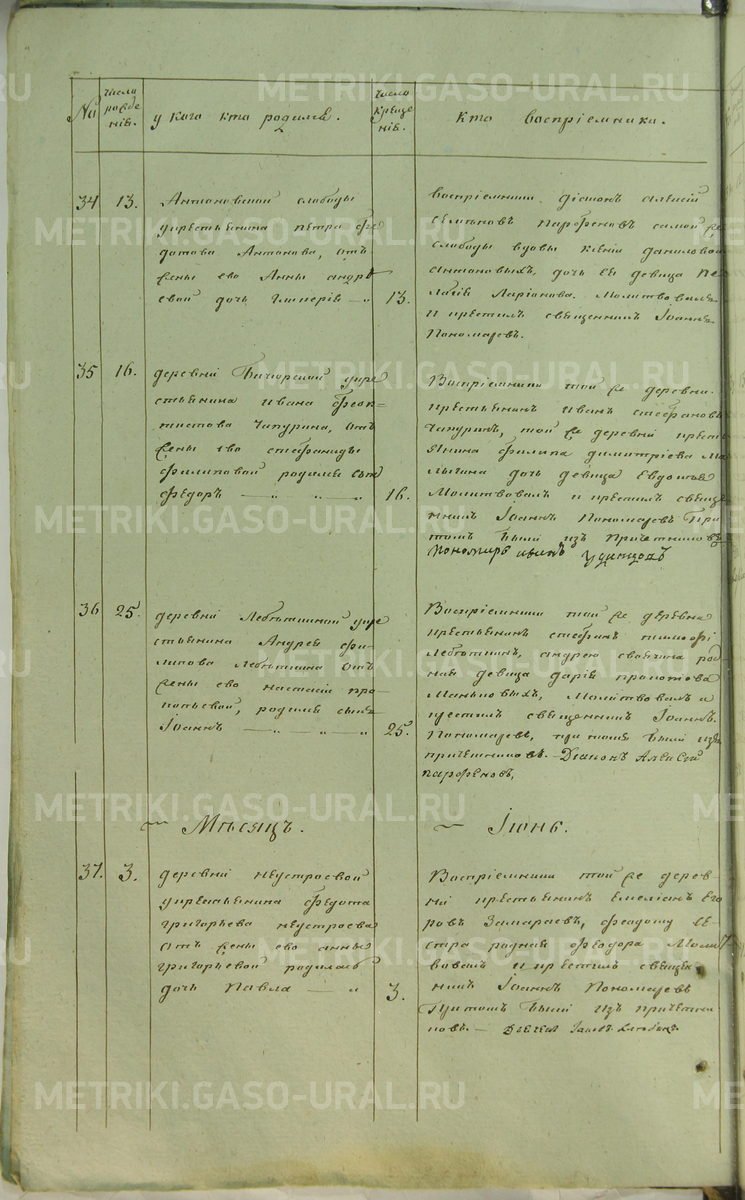 METRIKI.GASO-URAL.RU
№
число рожде нія.
у кого кто родился.
число креще нія.
кто воспріемники.
34
13.
Антоновской слободы
у крестьянина петра фе
дотова Антонова, отъ
жены его Анны андрѣ
евой дочь Гликерія
13.
воспріемники діаконъ алексій
парфеновъ самой же
слободы вдовы ксеніи даниловой
антоновыхъ, дочь ея девица пе
лагія Ларіонова. Молитвовалъ
и крестилъ священникъ Іоаннъ
Пономаревъ.
35
16.
деревни у кре
стьянина ивана феок=
тистова Чапурина, отъ
жены его стефаниды
филиповой родился сынъ
Федоръ
16.
Воспріемники той же деревни
крестьянинъ иванъ стефановъ
Чапуринъ, той же деревни кресть
янина филипа димитріева Ма
лыгина дочь девица Евдокія
Молитвовалъ и крестилъ свяще
нникъ Іоаннъ Пономаревъ При
томъ былъ изъ Причетниковъ
Пономарь иванъ Удинцовъ
36
25.
деревни у кре
стьянина Андрея фи
липова отъ
жены его настасіи про
копьевой, родился сынъ
Іоаннъ
25.
Воспріемники той же деревни
крестьянинъ стефанъ тимофі
андрею своячина род
ная девица дарія прокопова
молитвовалъ и
крестилъ священникъ Іоаннъ
Пономаревъ, при томъ былъ изъ
причетниковъ. Діаконъ Алексій
парфеновъ,
Мѣсяцъ.
Іюнь.
37.
3.
деревни неустроевой
у крестьянина федота
григорьева неустроева
отъ жены его анны
григорьевой родилась
дочь Павла
3.
Воспріемники той же дерев
ни крестьянинъ Емеліанъ Его
ровъ Замараевъ, федоту се
стра родная феодора Молит
вовалъ и крестилъ священ
никъ Іоаннъ Пономаревъ
Притомъ былъ изъ причетни
ковъ.